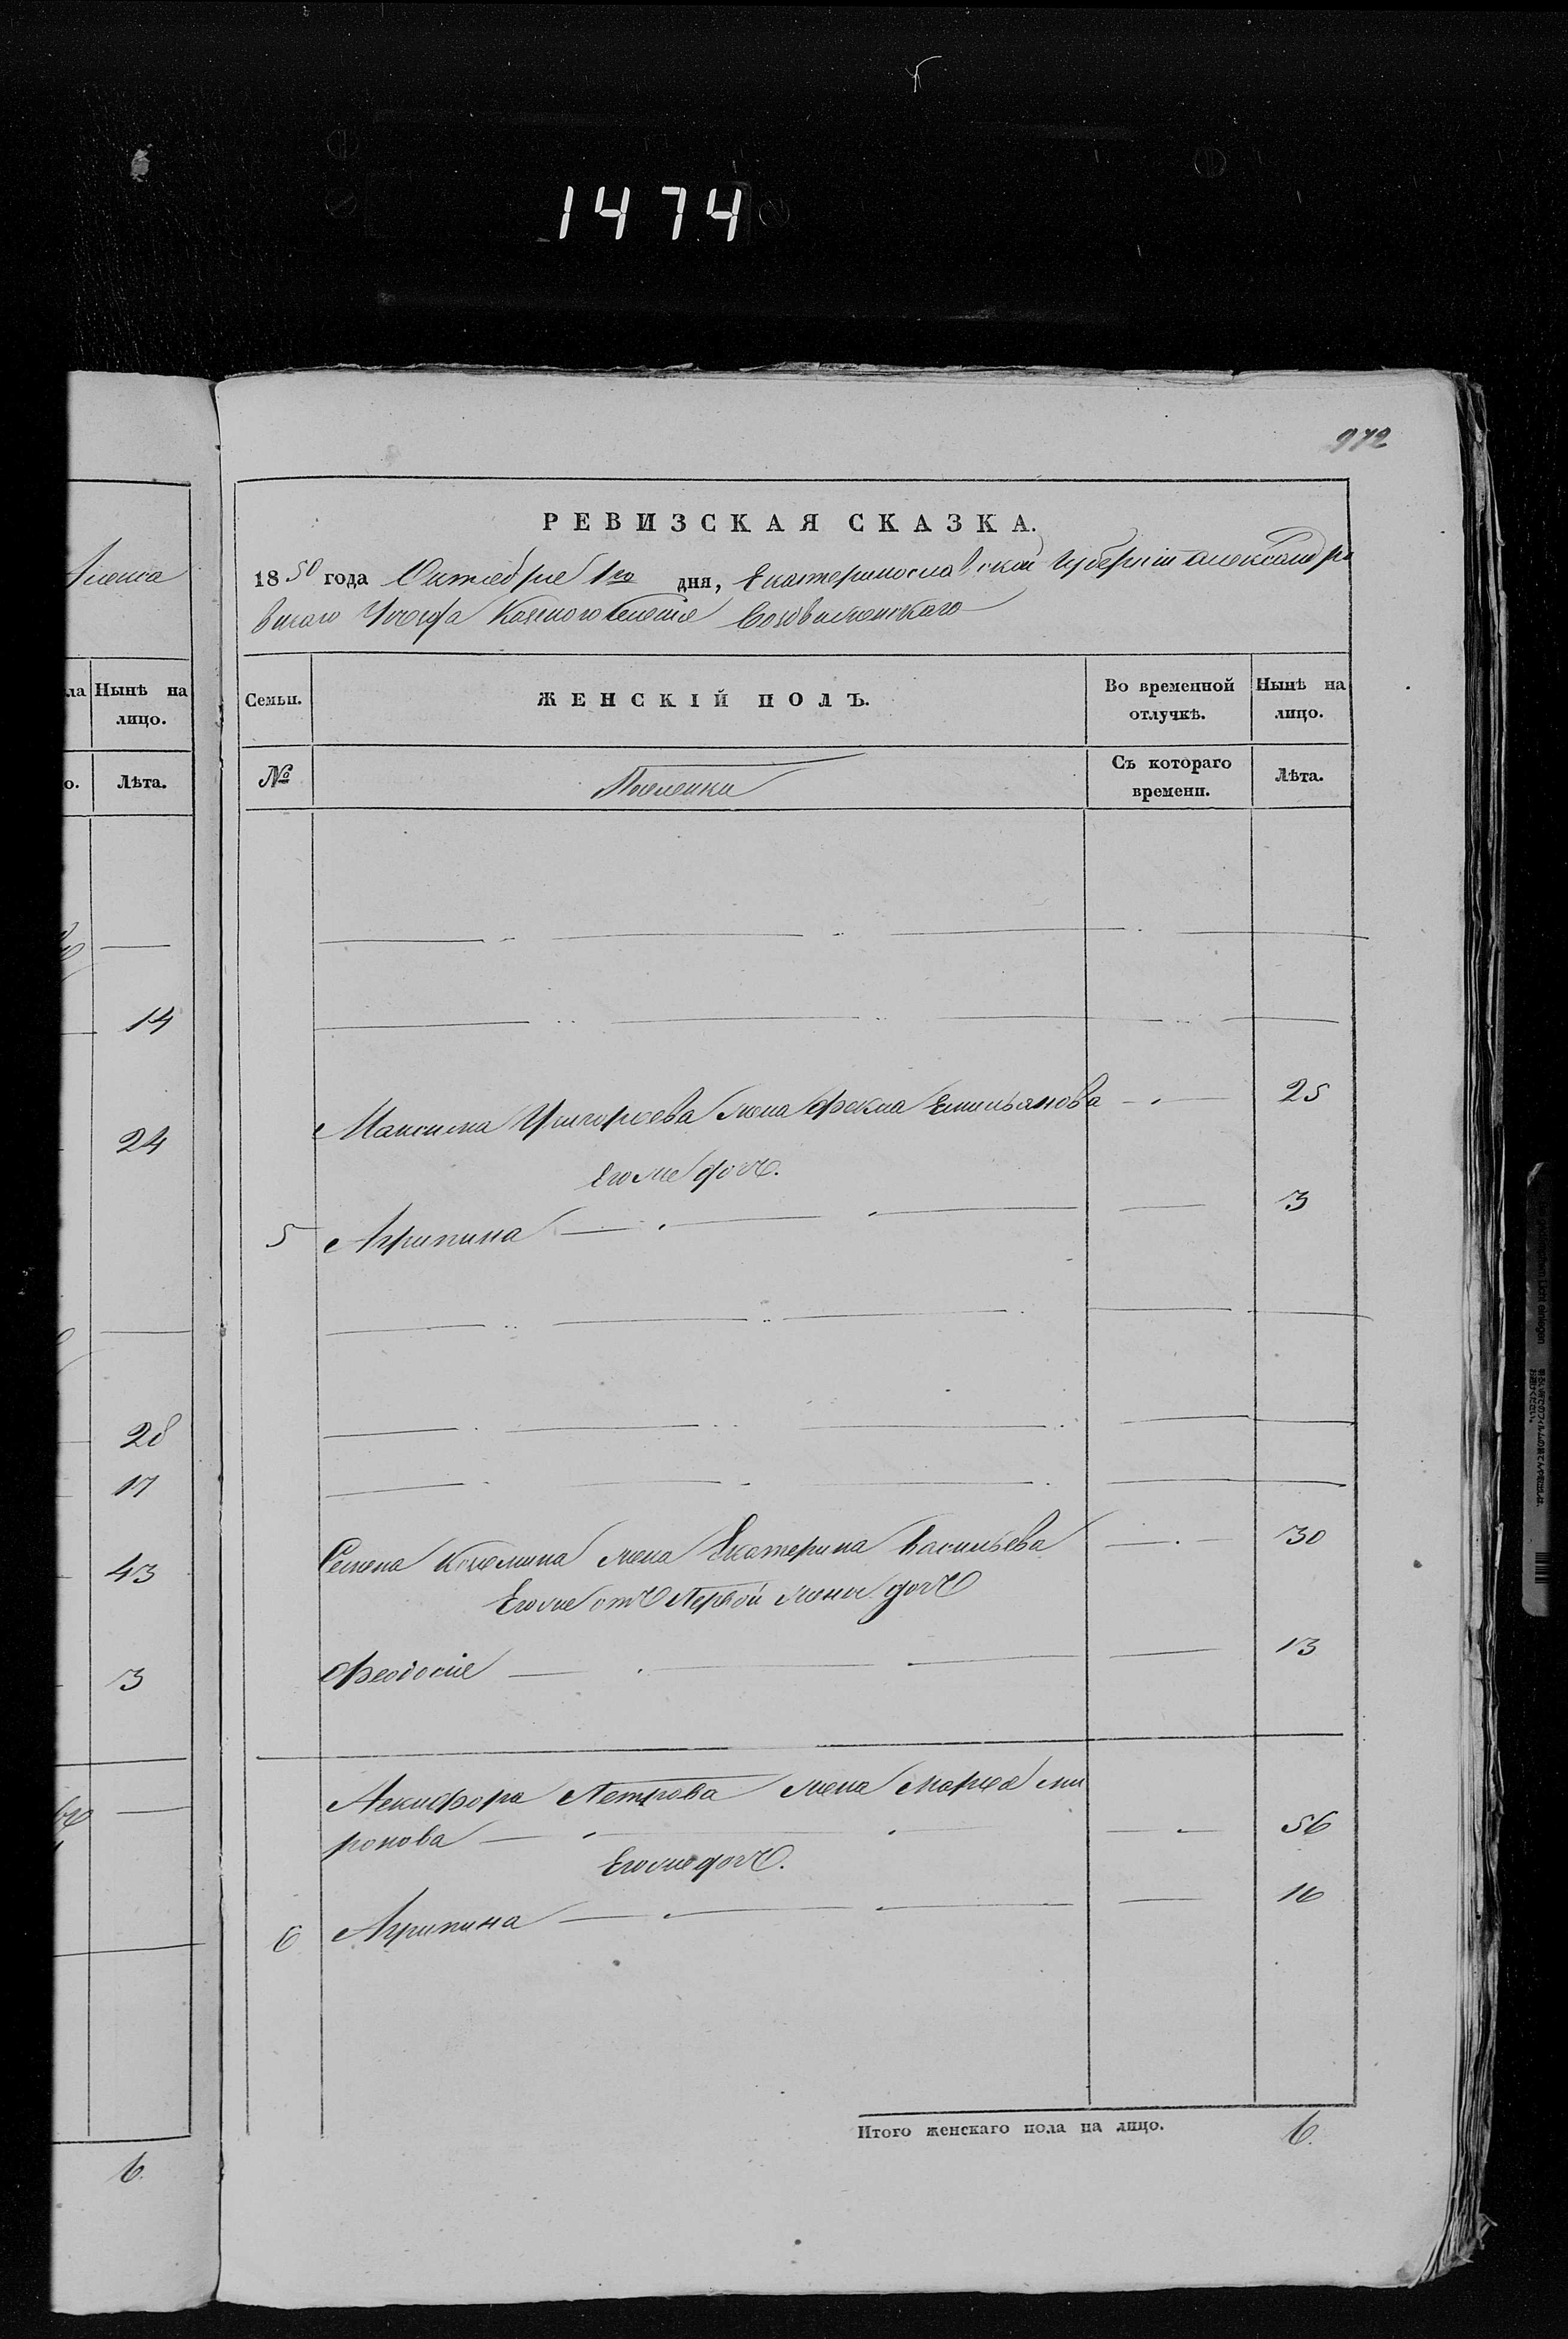 1474
972
РЕВИЗСКАЯ СКАЗКА.
1850 года Октября 1го дня, Екатеринославской Губерніи Александро
вскаго Уезда Казеннаго Селенія
ла
Нынѣ на лицо.
Семьи.
ЖЕНСКІЙ ПОЛЪ.
Во временной отлучкѣ.
Нынѣ на лицо.
о.
Лѣта.
№
Съ котораго времени.
Лѣта.
14
Максима Григорьева жена Фекла Емильянова 25
24
Его же дочь.
5 Агрипина 3
28
17
Семена жена Екатерина Васильева 30
43
Его же отъ Первой жены дочь
Феодосія 13
3
Никифора Петрова жена Марѳа Ми
ронова 56
Его же дочь.
6 Агрипина 16
Итого женскаго пола на лицо. 6.
6.